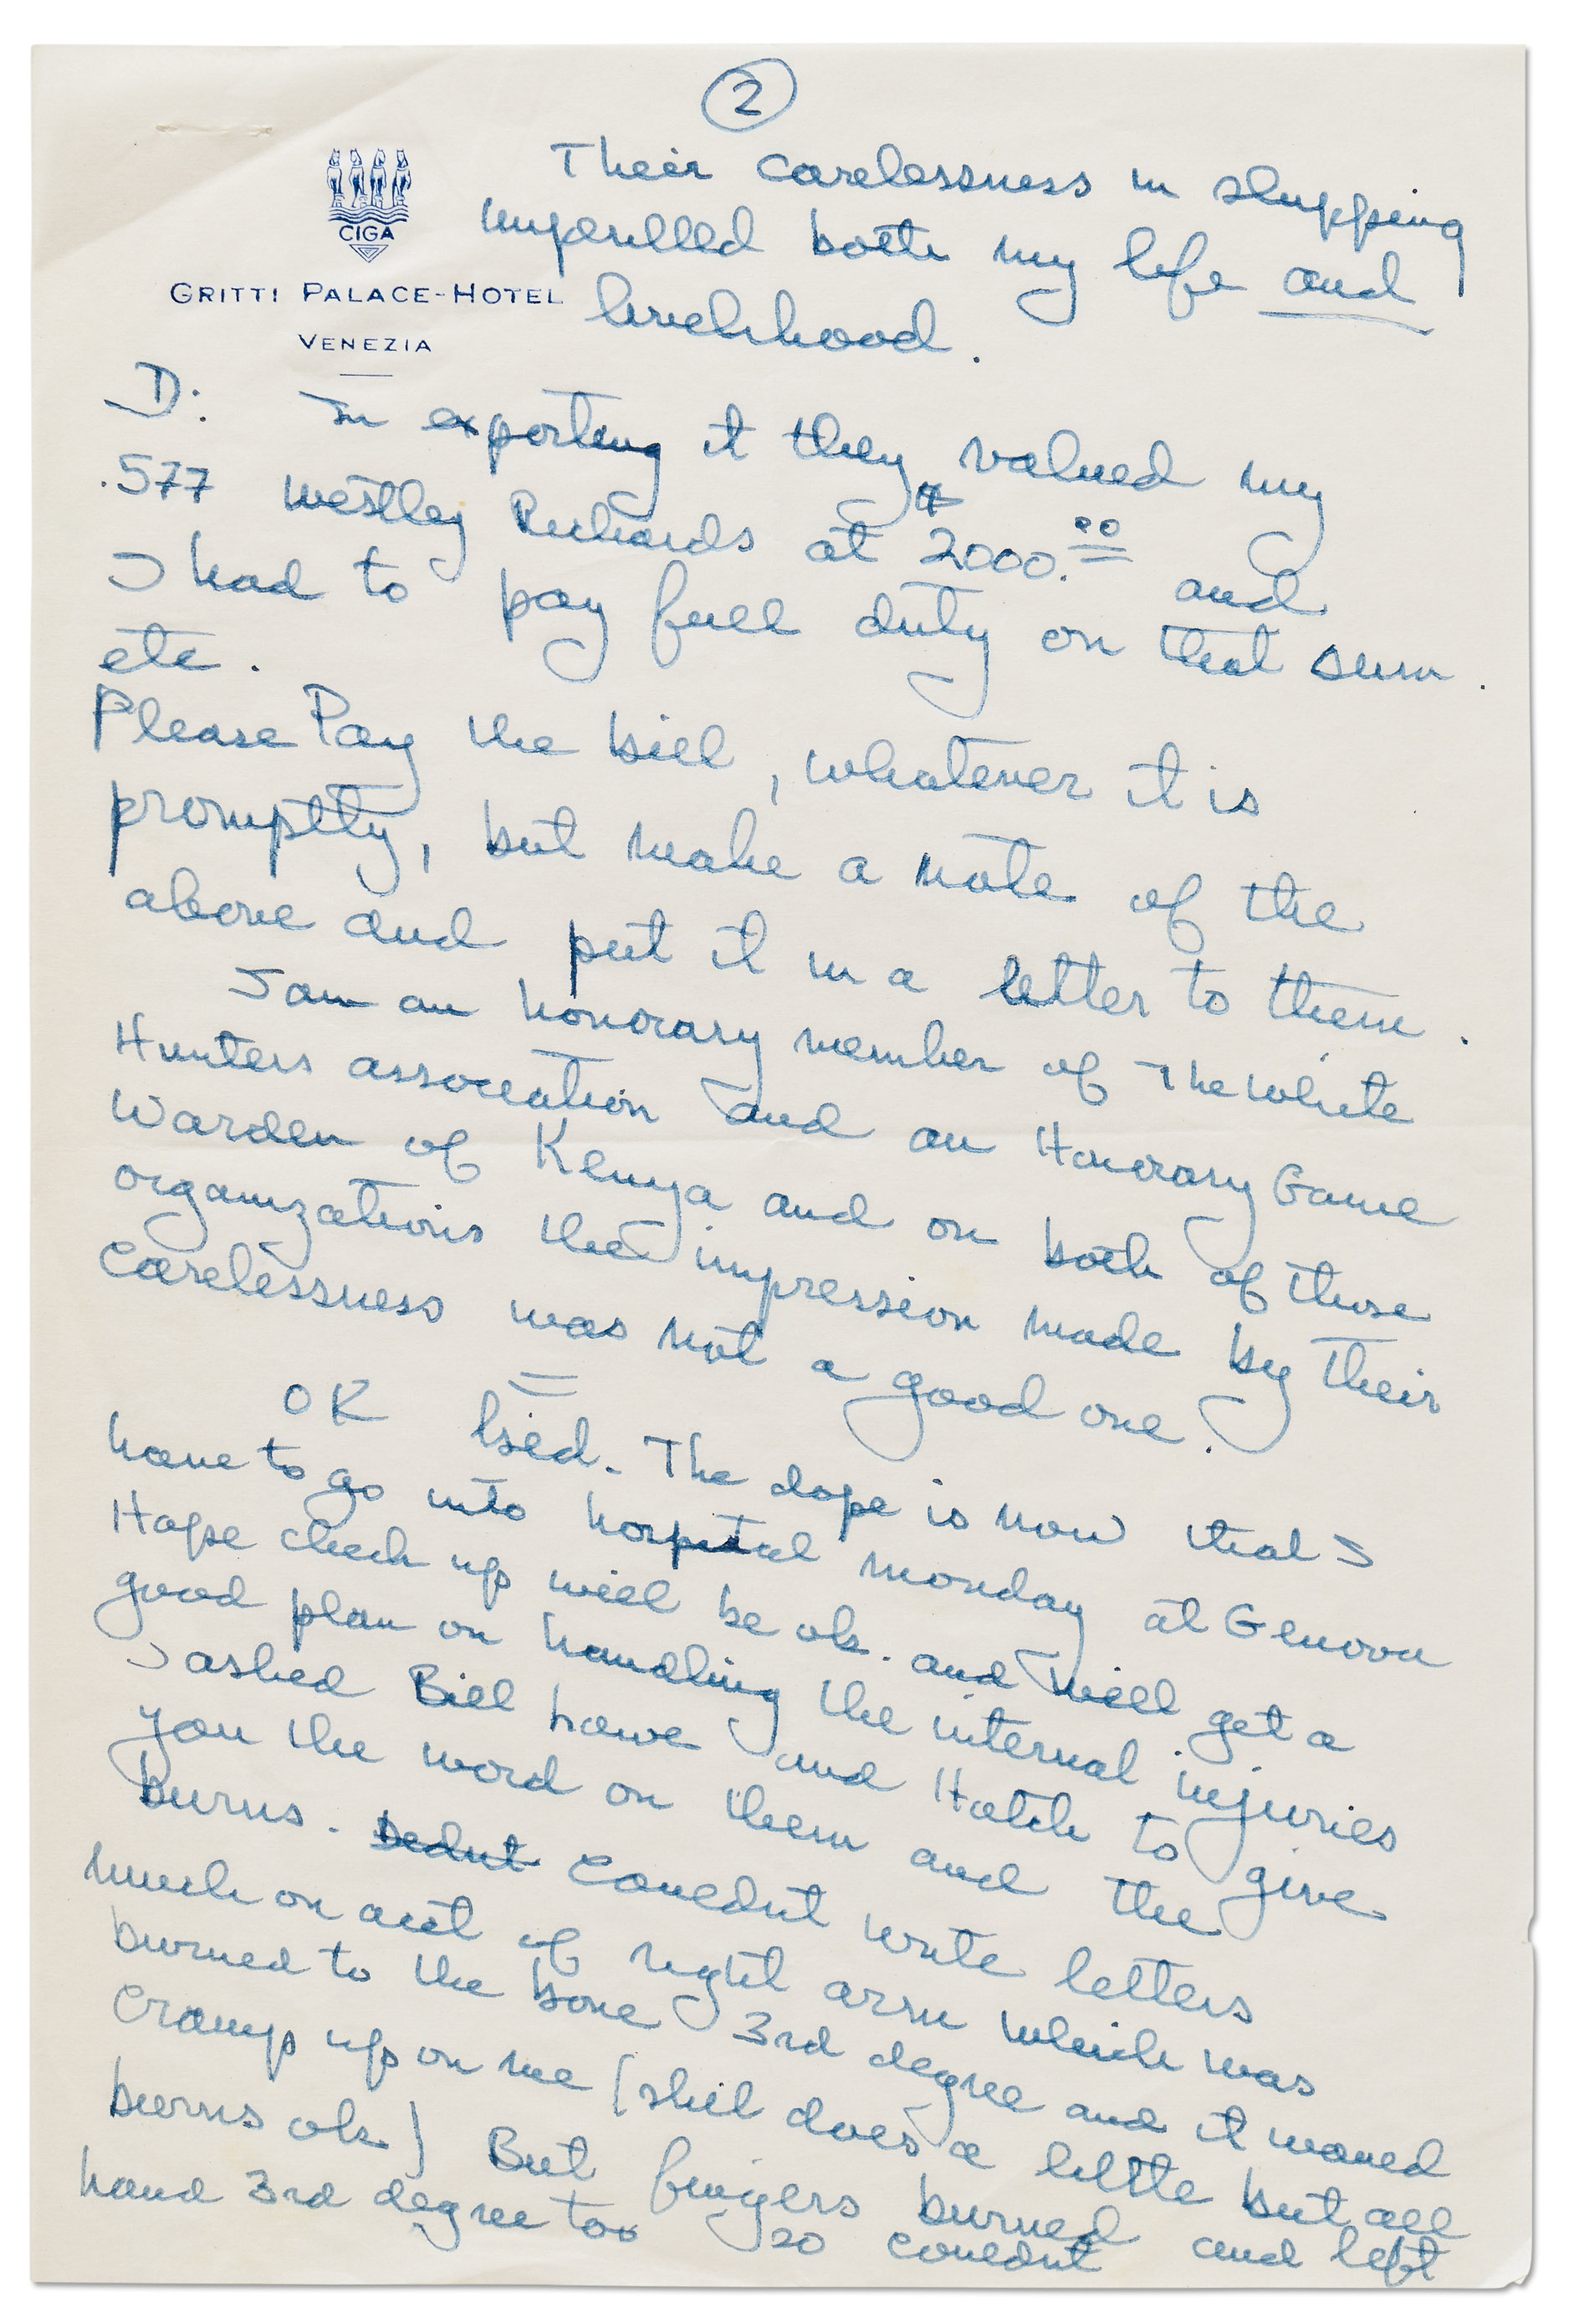 2
CIGA
GRITTI PALACE-HOTEL
VENEZIA
Their carelessness in shipping
imperilled both my life and
livelihood.
D: In exporting it they valued my
.577 Westley Richards at $2000.00 and
I had to pay full duty on that sum.
etc.
Please Pay the bill, whatever it is
promptly, but make a note of the
above and put it in a letter to them.
I am an honorary member of The White
Hunters association and an Honorary Game
Warden of Kenya and on both of those
organizations the impression made by their
carelessness was not a good one.
OK kid. The dope is now that I
have to go into hospital monday at Genova
Hope check up will be ok. and will get a
good plan on handling the internal injuries
I asked Bill Lowe and Hotch to give
you the word on them and the
burns. Dednt Couldnt write letters
much on acct of right arm which was
burned to the bone 3rd degree and it would
cramp up on me (still does a little but all
burns ok) But fingers burned and left
hand 3rd degree too so couldnt